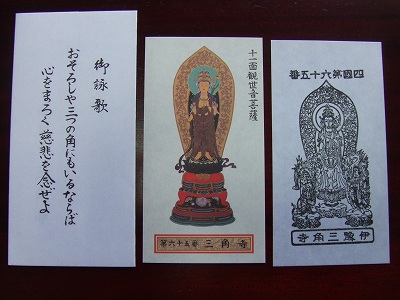 御詠歌
おそろしや三つの角にもいるならば
心をまろく慈悲を念ぜよ
十一面観世音菩薩
第六十五番 三角寺
四國第六十五番
伊豫三角寺